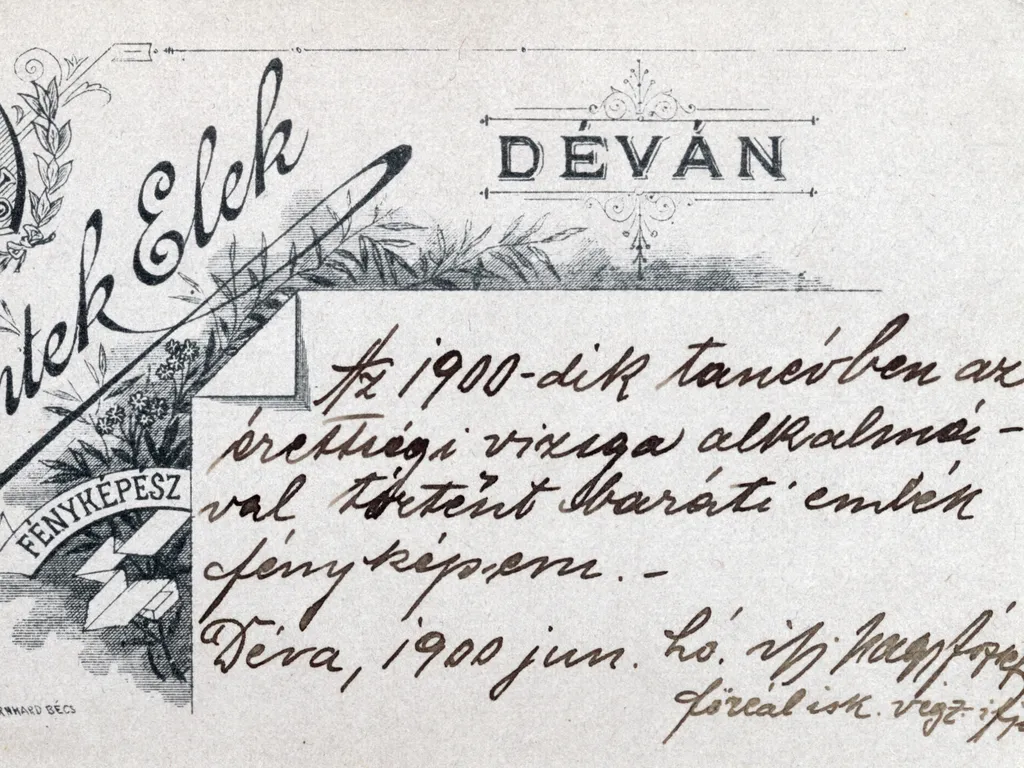 Elek
DÉVÁN
FÉNYKÉPÉSZ
Az 1900-dik tanévben az
érettségi vizsga alkalmá-
val történt baráti emlék
fényképem. –
Déva, 1900 jun. hó. ifj Nagy József
főreál isk. végz. ifj
BÉCS